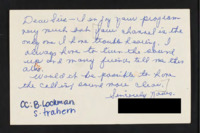 Dear Sirs - I enjoy your program
very much but your channel is the
only one I have trouble hearing. I
always have to turn the sound
up and many friends tell me this
also.
Would it be possible to have
the talking sound more clear?
Sincerely
CC: B. Lookman
S. Trahern